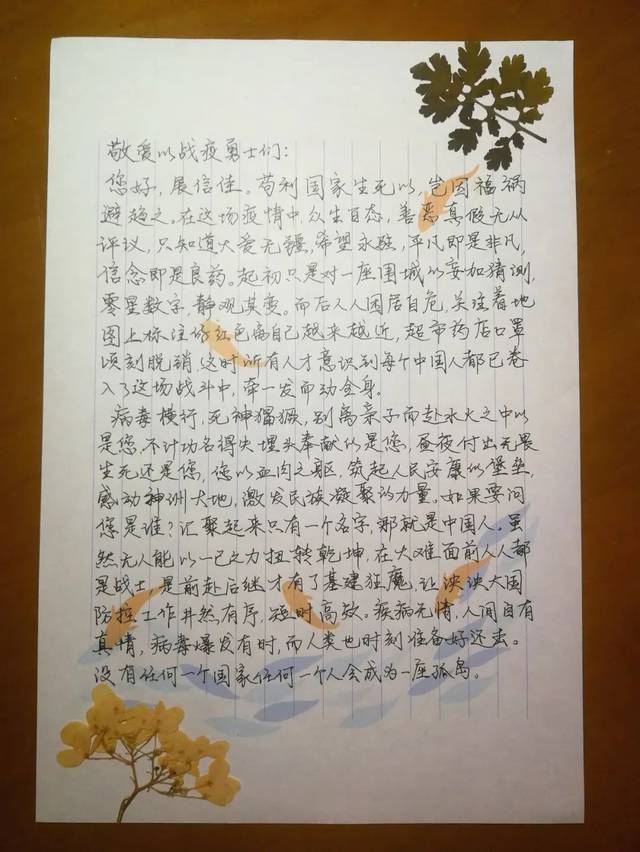 敬爱的战疫勇士们：
您好，展信佳。苟利国家生死以，岂因福祸
避趋之。在这场疫情中，众生百态，善恶真假无从
评议，只知道大爱无疆，希望永驻，平凡即是非凡，
信念即是良药。起初只是对一座围城的妄加猜测，
零星数字，静观其变。而后人人困居自危，关注着地
图上标注的红色离自己越来越近，超市药店口罩
顷刻脱销，这时所有人才意识到每个中国人都已卷
入了这场战斗中，牵一发而动全身。
病毒横行，死神猖獗，别离亲子而赴水火之中的
是您，不计功名得失埋头奉献的是您，昼夜付出无畏
生死还是您，您以血肉之躯，筑起人民安康的堡垒，
感动神洲大地，激发民族凝聚的力量。如果要问
您是谁？汇聚起来只有一个名字，那就是中国人。虽
然无人能以一己之力扭转乾坤，在大难面前人人都
是战士，是前赴后继才有了基建狂魔，让泱泱大国
防控工作井然有序，短时高效。疾病无情，人间自有
真情，病毒爆发有时，而人类也时刻准备好还击。
没有任何一个国家任何一个人会成为一座孤岛。